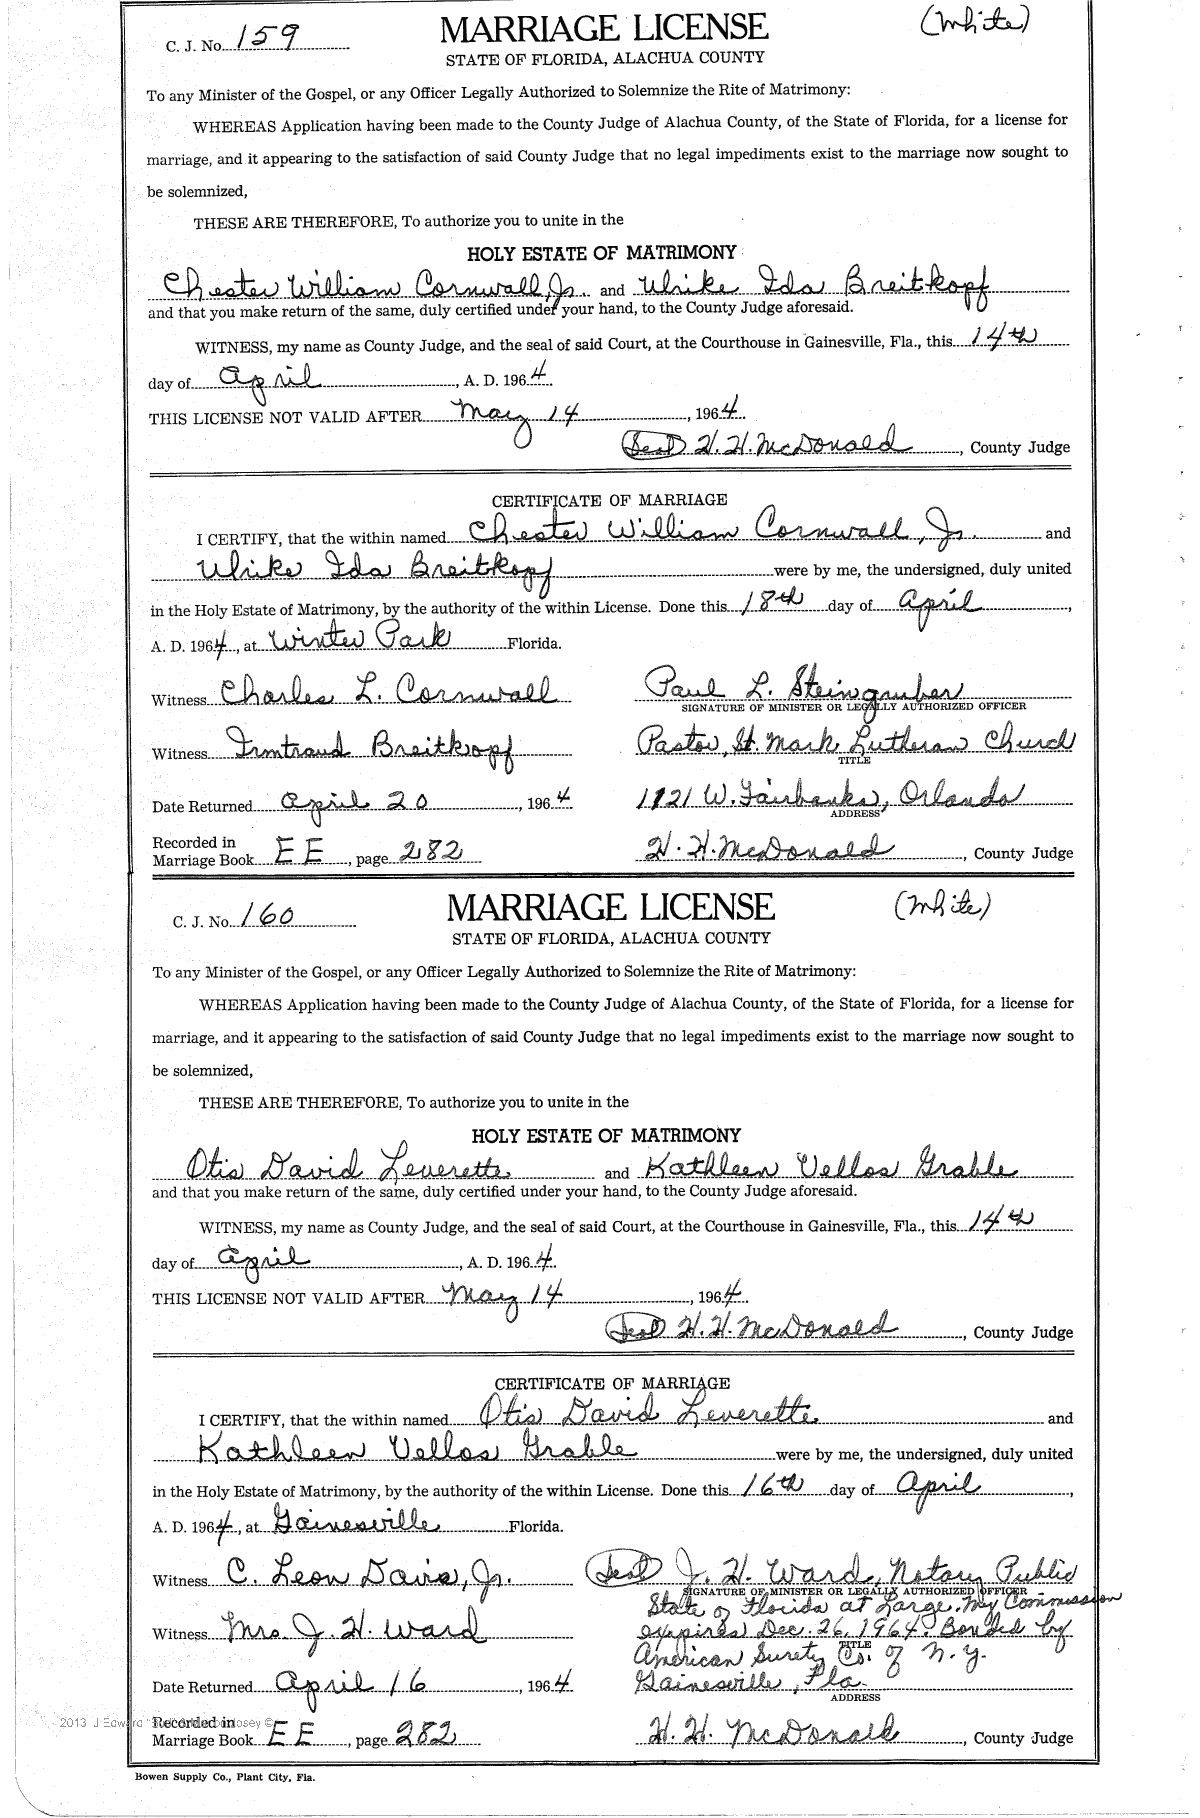 C. J. No. 159
MARRIAGE LICENSE
(White)
STATE OF FLORIDA, ALACHUA COUNTY
To any Minister of the Gospel, or any Officer Legally Authorized to Solemnize the Rite of Matrimony:
WHEREAS Application having been made to the County Judge of Alachua County, of the State of Florida, for a license for
marriage, and it appearing to the satisfaction of said County Judge that no legal impediments exist to the marriage now sought to
be solemnized,
THESE ARE THEREFORE, To authorize you to unite in the
HOLY ESTATE OF MATRIMONY
Chester William Cornwall, Jr. and Ulrike Ida Breitkopf
and that you make return of the same, duly certified under your hand, to the County Judge aforesaid.
WITNESS, my name as County Judge, and the seal of said Court, at the Courthouse in Gainesville, Fla., this 14th
day of April, A. D. 1964.
THIS LICENSE NOT VALID AFTER May 14, 1964.
(Seal) H. H. McDonald, County Judge
CERTIFICATE OF MARRIAGE
I CERTIFY, that the within named Chester William Cornwall, Jr. and
Ulrike Ida Breitkopf were by me, the undersigned, duly united
in the Holy Estate of Matrimony, by the authority of the within License. Done this 18th day of April,
A. D. 1964, at Winter Park Florida.
Witness Charles L. Cornwall Paul L. Steingruber
SIGNATURE OF MINISTER OR LEGALLY AUTHORIZED OFFICER
Witness Irmtraud Breitkopf Pastor, St. Mark Lutheran Church
TITLE
Date Returned April 20, 1964 1921 W. Fairbanks, Orlando
ADDRESS
Recorded in
Marriage Book EE, page 282 H. H. McDonald, County Judge
C. J. No. 160
MARRIAGE LICENSE
(White)
STATE OF FLORIDA, ALACHUA COUNTY
To any Minister of the Gospel, or any Officer Legally Authorized to Solemnize the Rite of Matrimony:
WHEREAS Application having been made to the County Judge of Alachua County, of the State of Florida, for a license for
marriage, and it appearing to the satisfaction of said County Judge that no legal impediments exist to the marriage now sought to
be solemnized,
THESE ARE THEREFORE, To authorize you to unite in the
HOLY ESTATE OF MATRIMONY
Otis David Leverette and Kathleen Vellos Grable
and that you make return of the same, duly certified under your hand, to the County Judge aforesaid.
WITNESS, my name as County Judge, and the seal of said Court, at the Courthouse in Gainesville, Fla., this 14th
day of April, A. D. 1964.
THIS LICENSE NOT VALID AFTER May 14, 1964.
(Seal) H. H. McDonald, County Judge
CERTIFICATE OF MARRIAGE
I CERTIFY, that the within named Otis David Leverette and
Kathleen Vellos Grable were by me, the undersigned, duly united
in the Holy Estate of Matrimony, by the authority of the within License. Done this 16th day of April,
A. D. 1964, at Gainesville Florida.
Witness C. Leon Davis, Jr. (Seal) J. H. Ward, Notary Public
SIGNATURE OF MINISTER OR LEGALLY AUTHORIZED OFFICER
State of Florida at Large. My Commission
Witness Mrs. J. H. Ward expires Dec. 26, 1964. Bonded by
TITLE
American Surety Co. of N. Y.
Date Returned April 16, 1964 Gainesville, Fla.
ADDRESS
2013 J Edward
Recorded in
Marriage Book EE, page 282 H. H. McDonald, County Judge
Bowen Supply Co., Plant City, Fla.